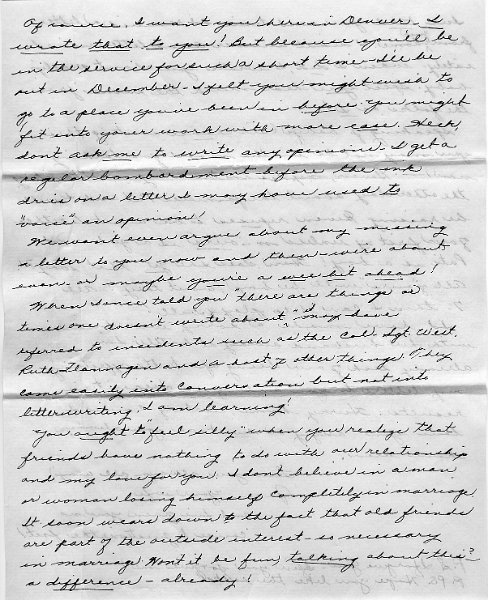 Of course, I want you here in Denver. I
wrote that to you! But because you'll be
in the service for such a short time - I'll be
out in December - I felt you might wish to
go to a place you've been in before you might
fit into your work with more ease. Heck,
don't ask me to write any opinions. I get a
regular bombardment before the ink
dries on a letter I may have used to
"voice" an opinion!
We won't even argue about my missing
a letter to you now and then - we're about
even or maybe you're a wee bit ahead!
When I once told you "there are things or
times one doesn't write about," I may have
referred to incidents such as the Col. Sgt. West,
Ruth Flannagen and a host of other things. They
come easily into conversation but not into
letterwriting. I am learning!
You ought to "feel silly" when you realize that
friends have nothing to do with our relationship
and my love for you. I don't believe in a man
or woman losing himself completely in marriage.
It soon wears down to the fact that old friends
are part of the outside interest - so necessary
in marriage. Won't it be fun, talking about this?
a difference - already!